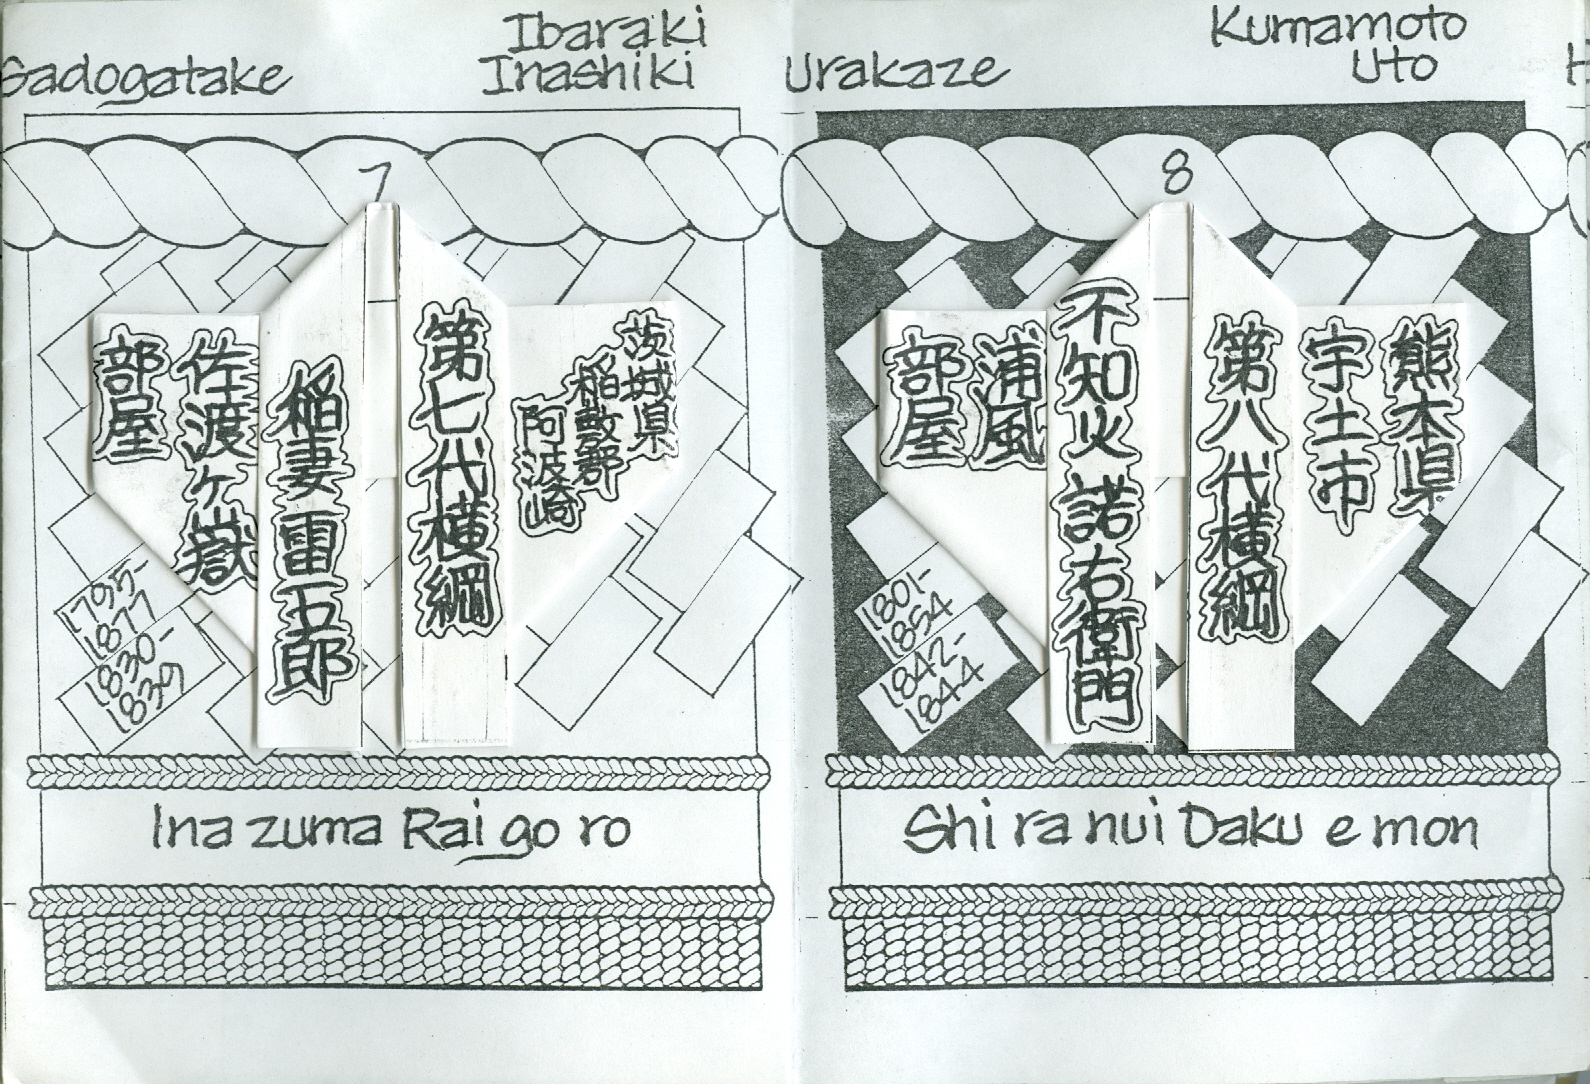 Sadogatake
Ibaraki
Inashiki
7
茨城県
稲敷郡
阿波崎
第七代横綱
稲妻 雷五郎
佐渡ヶ嶽
部屋
1795-
1877
1830-
1839
Inazuma Raigoro
Urakaze
Kumamoto
Uto
8
熊本県
宇土市
第八代横綱
不知火 諾右衛門
浦風
部屋
1801-
1854
1842-
1844
Shiranui Dakuemon